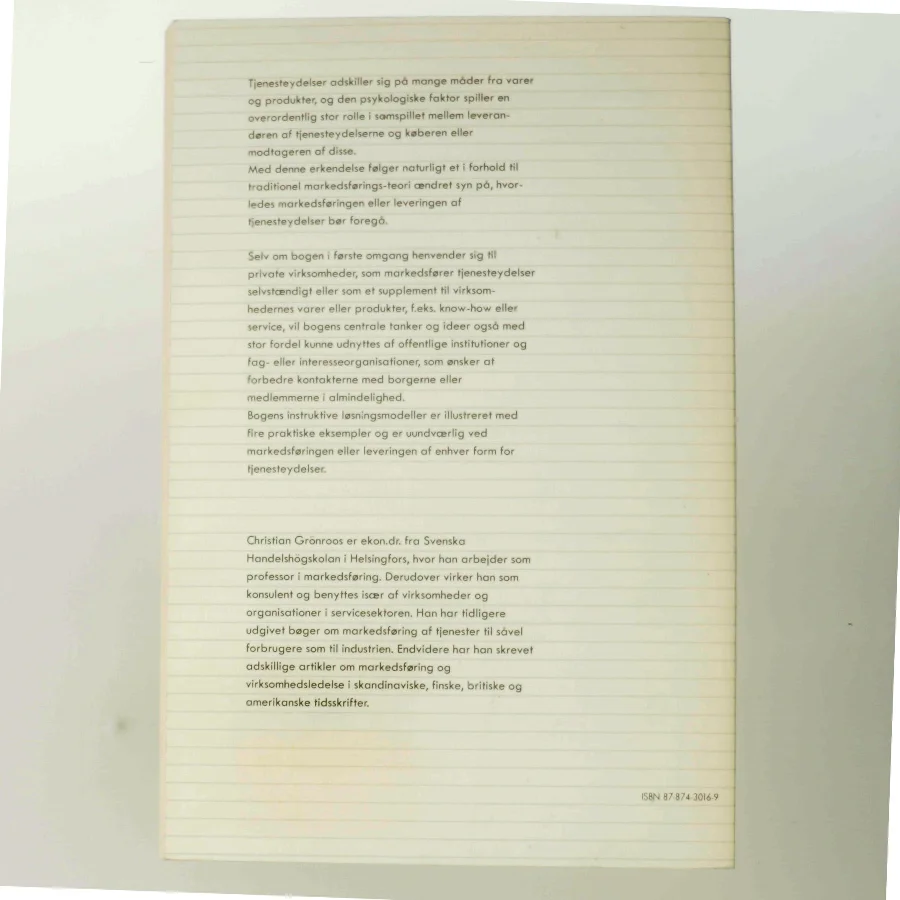 Tjenesteydelser adskiller sig på mange måder fra varer
og produkter, og den psykologiske faktor spiller en
overordentlig stor rolle i samspillet mellem leveran-
døren af tjenesteydelserne og køberen eller
modtageren af disse.
Med denne erkendelse følger naturligt et i forhold til
traditionel markedsførings-teori ændret syn på, hvor-
ledes markedsføringen eller leveringen af
tjenesteydelser bør foregå.
Selv om bogen i første omgang henvender sig til
private virksomheder, som markedsfører tjenesteydelser
selvstændigt eller som et supplement til virksom-
hedernes varer eller produkter, f.eks. know-how eller
service, vil bogens centrale tanker og ideer også med
stor fordel kunne udnyttes af offentlige institutioner og
fag- eller interesseorganisationer, som ønsker at
forbedre kontakterne med borgerne eller
medlemmerne i almindelighed.
Bogens instruktive løsningsmodeller er illustreret med
fire praktiske eksempler og er uundværlig ved
markedsføringen eller leveringen af enhver form for
tjenesteydelser.
Christian Grönroos er ekon.dr. fra Svenska
Handelshögskolan i Helsingfors, hvor han arbejder som
professor i markedsføring. Derudover virker han som
konsulent og benyttes især af virksomheder og
organisationer i servicesektoren. Han har tidligere
udgivet bøger om markedsføring af tjenester til såvel
forbrugere som til industrien. Endvidere har han skrevet
adskillige artikler om markedsføring og
virksomhedsledelse i skandinaviske, finske, britiske og
amerikanske tidsskrifter.
ISBN 87-874-3016-9